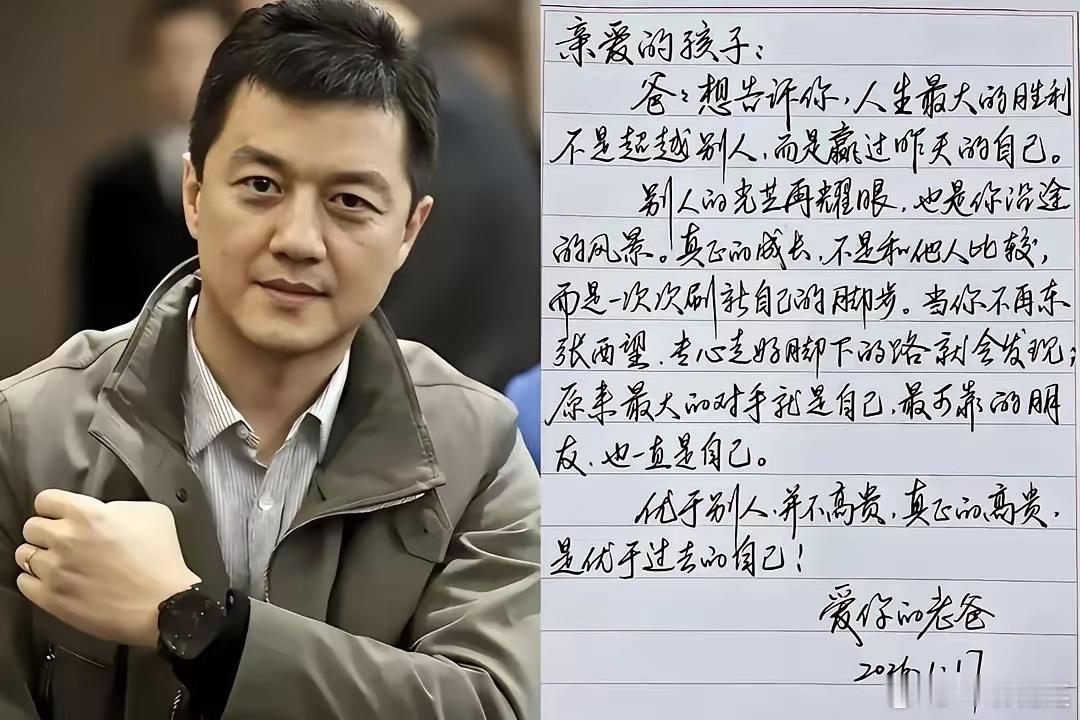 亲爱的孩子：
爸々想告诉你，人生最大的胜利
不是超越别人，而是赢过昨天的自己。
别人的光芒再耀眼，也是你沿途
的风景。真正的成长，不是和他人比较，
而是一次次刷新自己的脚步。当你不再东
张西望、专心走好脚下的路就会发现；
原来最大的对手就是自己，最可靠的朋
友，也一直是自己。
优于别人，并不高贵，真正的高贵，
是优于过去的自己！
爱你的老爸
2026.1.17